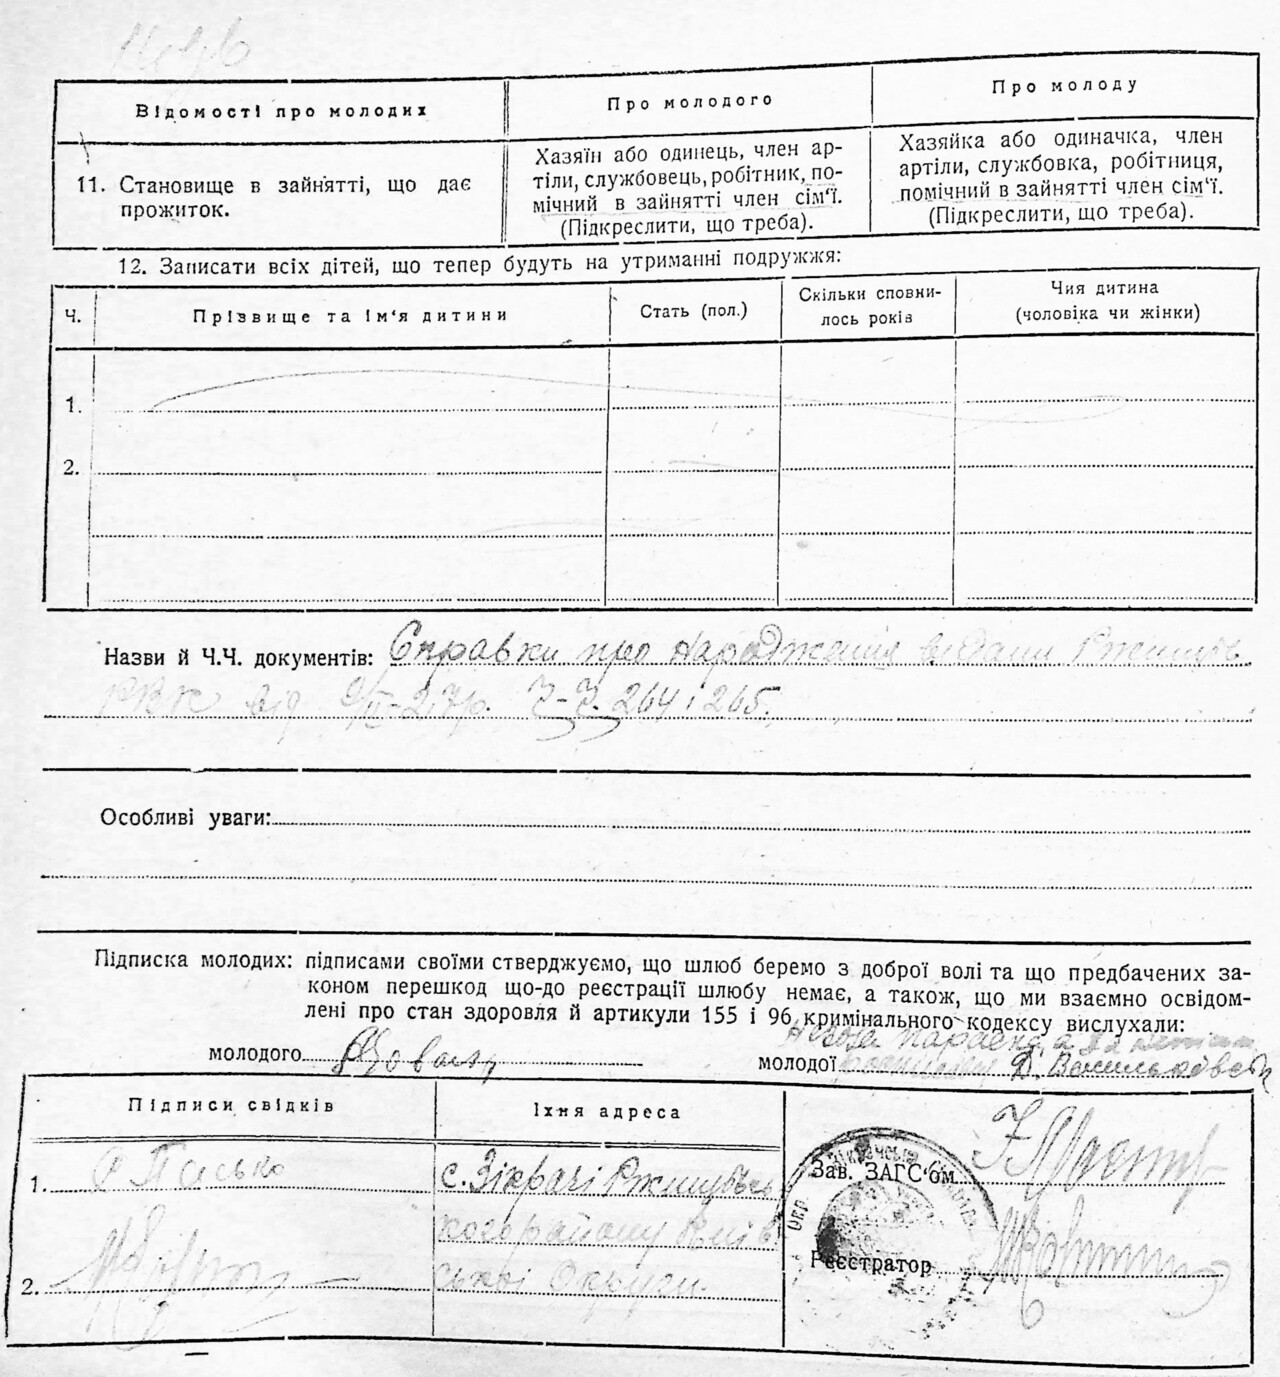 Відомості про молодих
Про молодого
Про молоду
11. Становище в зайнятті, що дає
прожиток.
Хазяїн або одинець, член ар-
тіли, службовець, робітник, по-
мічний в зайнятті член сім‘ї.
(Підкреслити, що треба).
Хазяйка або одиначка, член
артіли, службовка, робітниця,
помічний в зайнятті член сім‘ї.
(Підкреслити, що треба).
12. Записати всіх дітей, що тепер будуть на утриманні подружжя:
Ч.
Прізвище та ім‘я дитини
Стать (пол.)
Скільки сповни-
лось років
Чия дитина
(чоловіка чи жінки)
1.
2.
Назви й Ч.Ч. документів: Справки про народження видани Ржищів.
РВК від 9/III-27р. Ч-Ч. 264 і 265.
Особливі уваги:
Підписка молодих: підписами своїми стверджуємо, що шлюб беремо з доброї волі та що предбачених за-
коном перешкод що-до реєстрації шлюбу немає, а також, що ми взаємно освідом-
лені про стан здоровля й артикули 155 і 96 кримінального кодексу вислухали:
молодого
молодої
Підписи свідків
Їхня адреса
1.
с. Зікрачі Ржищівсь
кого району Київ
ської Округи.
2.
Зав. ЗАГС‘ом
Реєстратор